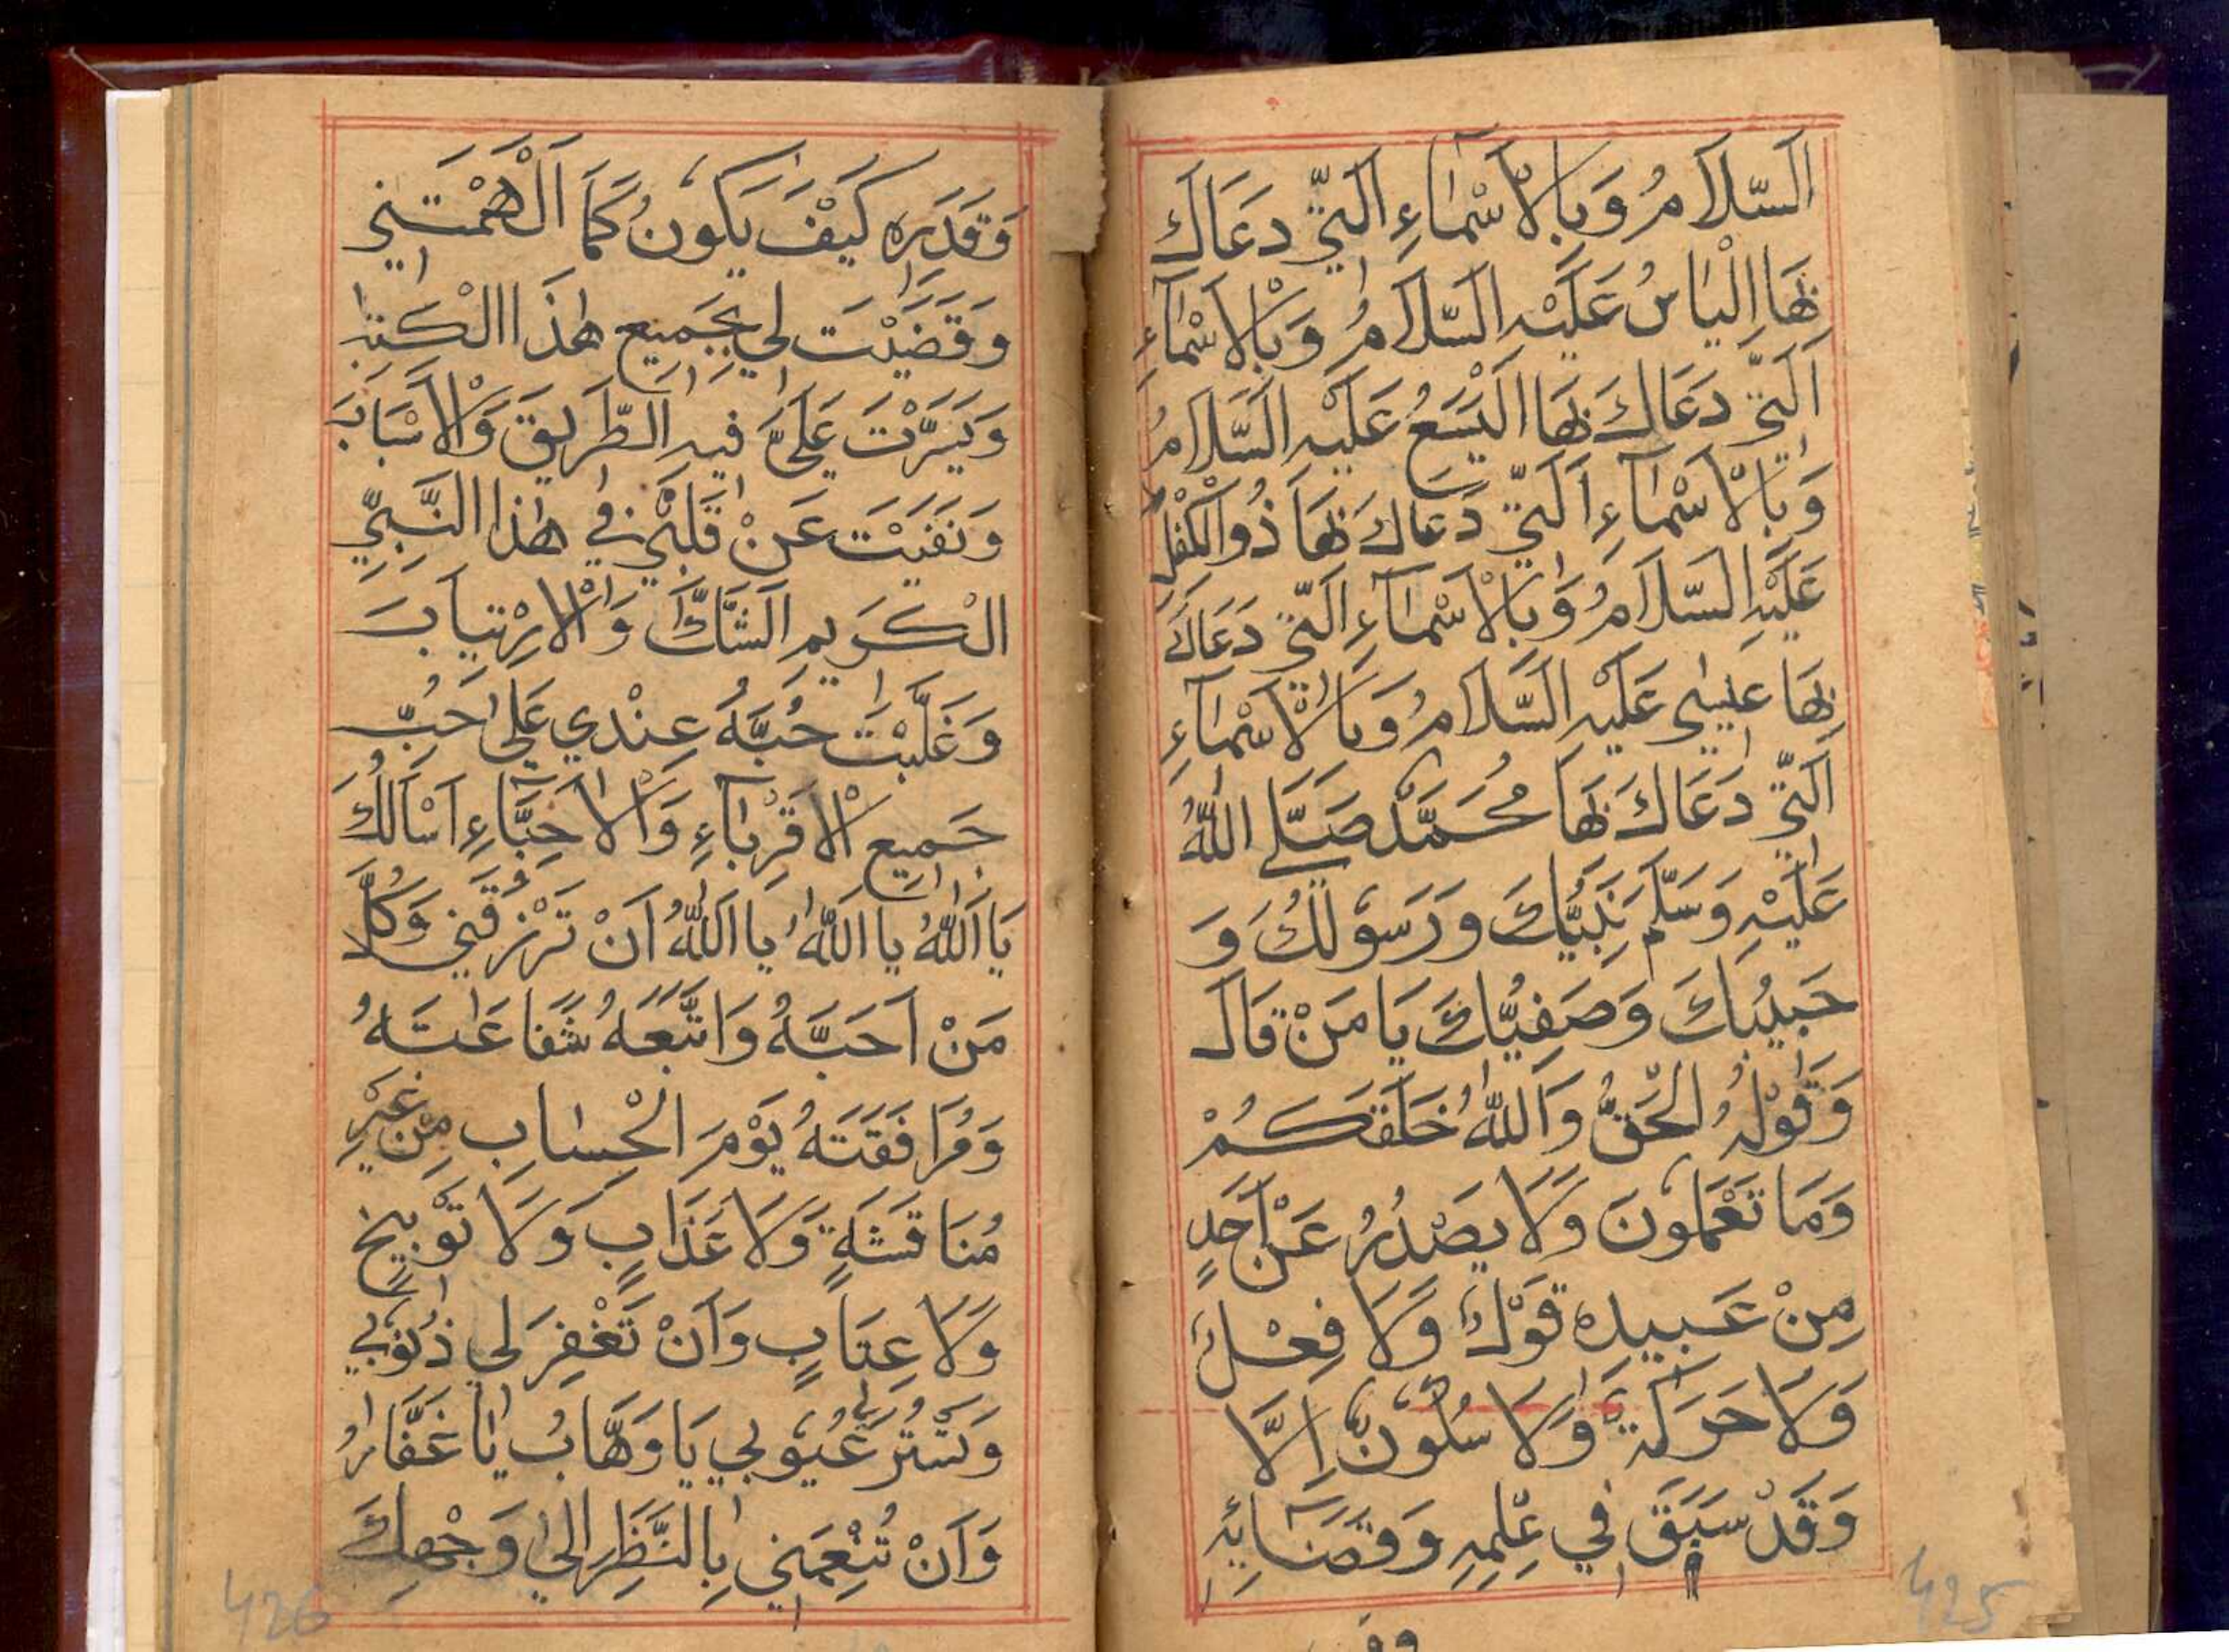 اَلسَّلَامُ وَبِالْاَسْمَاءِ الَّتِيْ دَعَاكَ
بِهَا اِلْيَاسُ عَلَيْهِ السَّلَامُ وَبِالْاَسْمَاءِ
الَّتِيْ دَعَاكَ بِهَا الْيَسَعُ عَلَيْهِ السَّلَامُ
وَبِالْاَسْمَاءِ الَّتِيْ دَعَاكَ بِهَا ذُوالْكِفْلِ
عَلَيْهِ السَّلَامُ وَبِالْاَسْمَاءِ الَّتِيْ دَعَاكَ
بِهَا عِيْسٰى عَلَيْهِ السَّلَامُ وَبِالْاَسْمَاءِ
الَّتِيْ دَعَاكَ بِهَا مُحَمَّدٌ صَلَّى اللّٰهُ
عَلَيْهِ وَسَلَّمَ نَبِيُّكَ وَرَسُوْلُكَ وَ
حَبِيْبُكَ وَصَفِيُّكَ يَا مَنْ قَالَ
وَقَوْلُهُ الْحَقُّ وَاللّٰهُ خَلَقَكُمْ
وَمَا تَعْمَلُوْنَ وَلَا يَصْدُرُ عَنْ اَحَدٍ
مِنْ عَبِيْدِهٖ قَوْلٌ وَلَا فِعْلٌ
وَلَا حَرَكَةٌ وَلَا سُكُوْنٌ اِلَّا
وَقَدْ سَبَقَ فِيْ عِلْمِهٖ وَقَضَآئِهٖ
وقد
425
وَقَدَرِهٖ كَيْفَ يَكُوْنُ كَمَا اَلْهَمْتَنِيْ
وَقَضَيْتَ لِيْ بِجَمِيْعِ هٰذَا الْكِتٰبِ
وَيَسَّرْتَ عَلَيَّ فِيْهِ الطَّرِيْقَ وَالْاَسْبَابَ
وَنَفَيْتَ عَنْ قَلْبِيْ فِيْ هٰذَا النَّبِيِّ
الْكَرِيْمِ الشَّكَّ وَالْاِرْتِيَابَ
وَغَلَّبْتَ حُبَّهُ عِنْدِيْ عَلٰى حُبِّ
جَمِيْعِ الْاَقْرِبَآءِ وَالْاَحِبَّآءِ اَسْاَلُكَ
يَا اَللّٰهُ يَا اَللّٰهُ يَا اَللّٰهُ اَنْ تَرْزُقَنِيْ وَكُلَّ
مَنْ اَحَبَّهُ وَاتَّبَعَهُ شَفَاعَتَهُ
وَمُرَافَقَتَهُ يَوْمَ الْحِسَابِ مِنْ غَيْرِ
مُنَاقَشَةٍ وَلَا عَذَابٍ وَلَا تَوْبِيْخٍ
وَلَا عِتَابٍ وَاَنْ تَغْفِرَ لِيْ ذُنُوْبِيْ
وَتَسْتُرَ عُيُوْبِيْ يَا وَهَّابُ يَا غَفَّارُ
وَاَنْ تُنْعِمَنِيْ بِالنَّظَرِ اِلٰى وَجْهِكَ
426